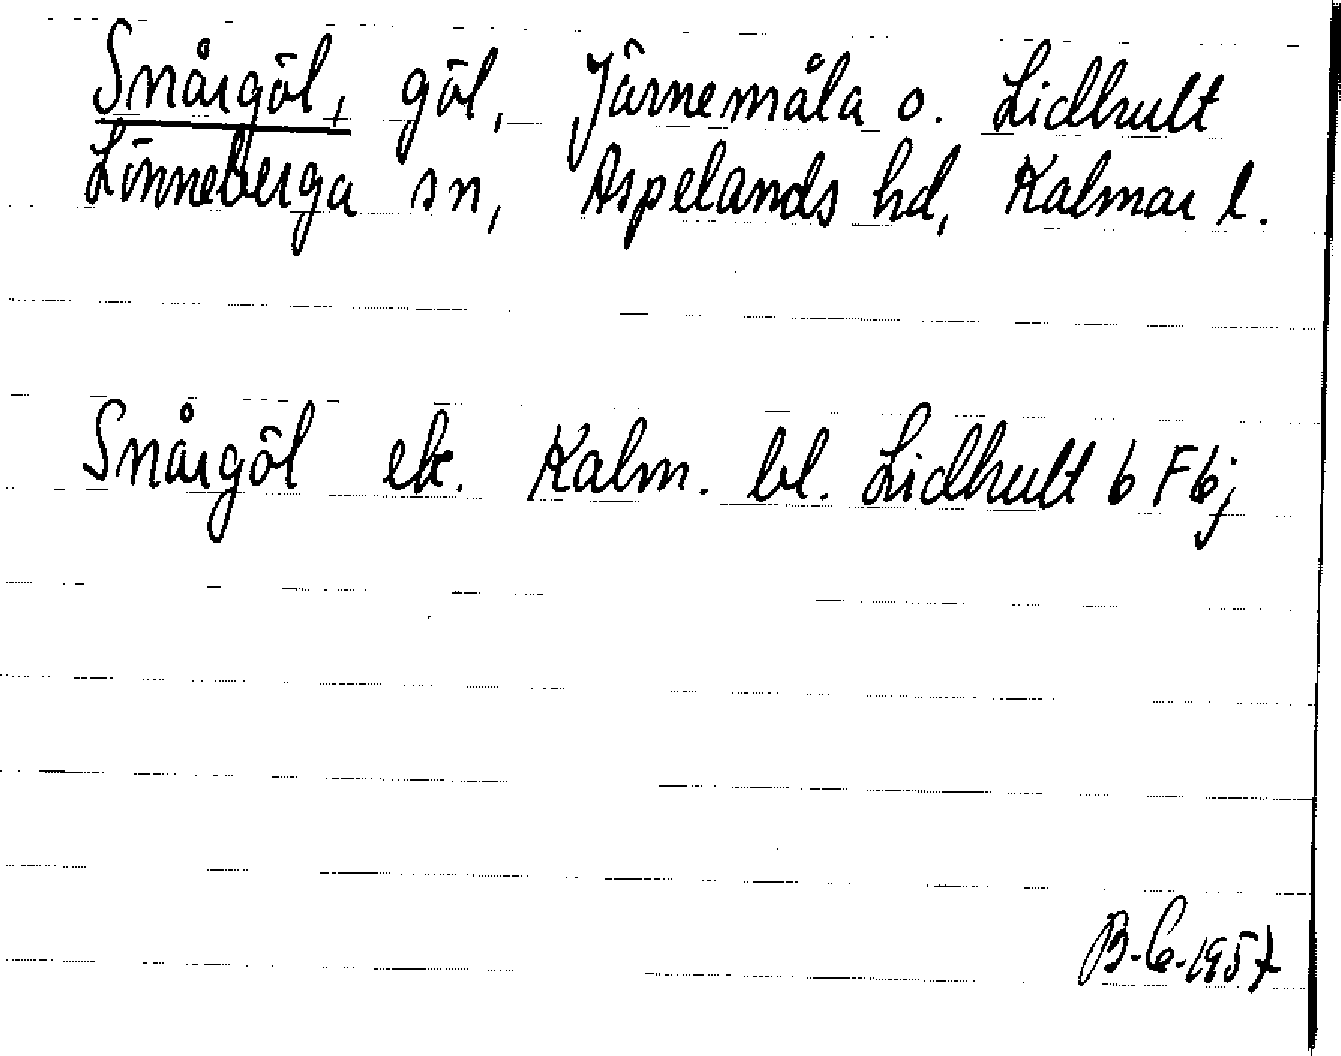 Snårgöl, göl, Järnemåla o. Lidhult
Lönneberga sn, Aspelands hd, Kalmar l.
Snårgöl ek. Kalm. bl. Lidhult 6 F 6j
B-C-1957